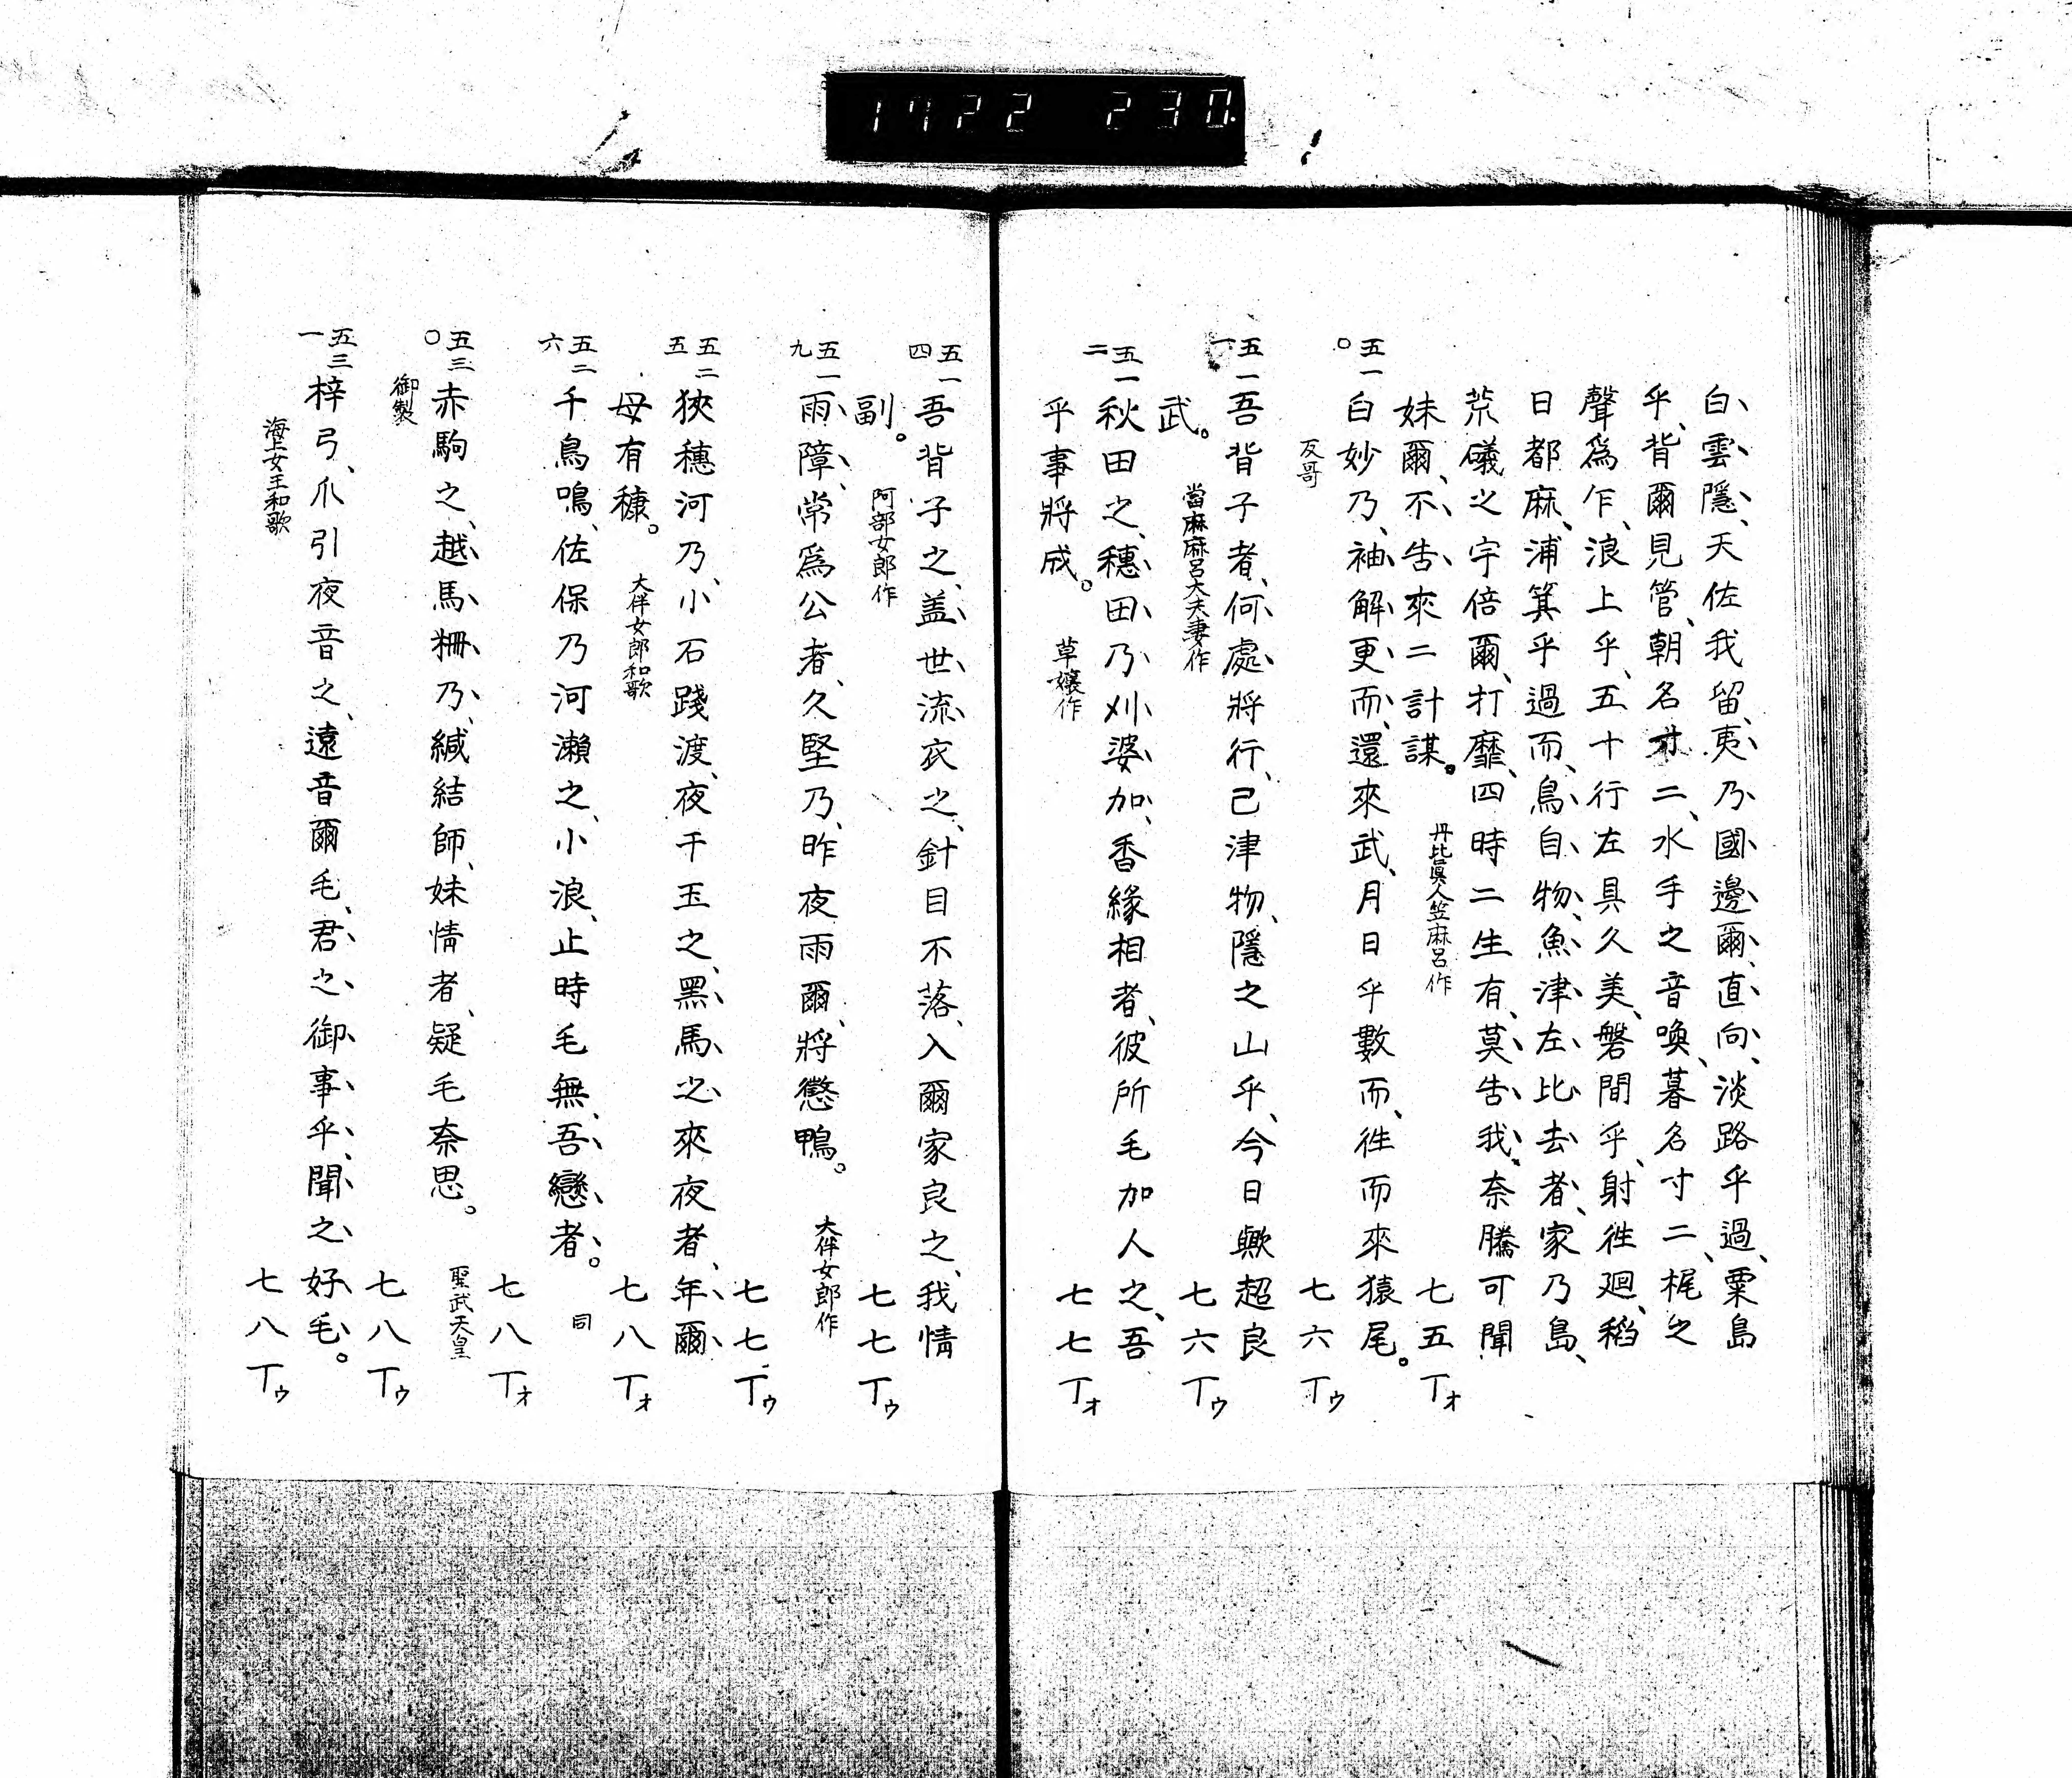 1722 230
白雲隱、天佐我留、夷乃國邊爾、直向、淡路乎過、粟島
乎、背爾見管、朝名寸二、水手之音喚、暮名寸二、梶之
聲爲乍、浪上乎、五十行左具久美、磐間乎、射徃廻、稻
日都麻、浦箕乎過而、鳥自物、魚津左比去者、家乃島、
荒礒之宇倍爾、打靡、四時二生有、莫告我、奈騰可聞
妹爾、不告來二計謀。 丹比眞人笠麻呂作 七五丁オ
反哥
五一〇 白妙乃、袖解更而、還來武、月日乎數而、徃而來猿尾。 七六丁ウ
五一一 吾背子者、何處將行、己津物、隱之山乎、今日歟超良
武。 當麻麻呂大夫妻作 七六丁ウ
五一二 秋田之、穗田乃刈婆加、香緣相者、彼所毛加人之、吾
乎事將成。 草孃作 七七丁オ
五一四 吾背子之、盖世流衣之、針目不落、入爾家良之、我情
副。 阿部女郎作 七七丁ウ
五一九 雨障、常爲公者、久堅乃、昨夜雨爾、將懲鴨。 大伴女郎作 七七丁ウ
五二五 狹穗河乃、小石踐渡、夜干玉之、黑馬之來夜者、年爾
母有穅。 大伴女郎和歌 七八丁オ
五二六 千鳥鳴、佐保乃河瀨之、小浪、止時毛無、吾戀者。 同 七八丁オ
五三〇 赤駒之、越馬柵乃、緘結師、妹情者、疑毛奈思。 聖武天皇
御製 七八丁ウ
五三一 梓弓、爪引夜音之、遠音爾毛、君之御事乎、聞之好毛。
海上女王和歌 七八丁ウ